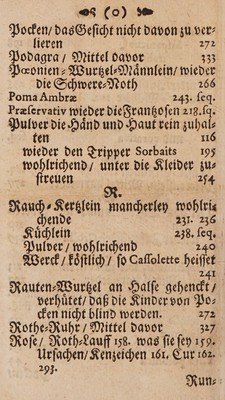 (o)
Pocken/ das Gesicht nicht davon zu ver-
lieren 272
Podagra/ Mittel davor 333
Pœonien-Wurtzel-Männlein/ wieder
die Schwere-Noth 266
Poma Ambræ 243. seq.
Præservativ wieder die Frantzosen 218. sq.
Pulver die Händ und Haut rein zuhal-
ten 116
wieder den Tripper Sorbaits 195
wohlriechend/ unter die Kleider zu-
streuen 254
R.
Rauch-Kertzlein mancherley wohlri-
chende 231. 236
Küchlein 238. seq.
Pulver/ wohlrichend 240
Werck/ köstlich/ so Cassolette heisset
241
Rauten-Wurtzel an Halse gehenckt/
verhütet/ daß die Kinder von Po-
cken nicht blind werden. 272
Rothe-Ruhr/ Mittel davor 327
Rose/ Roth-Lauff 158. was sie sey 159.
Ursachen/ Kenzeichen 161. Cur 162.
293.
Run-